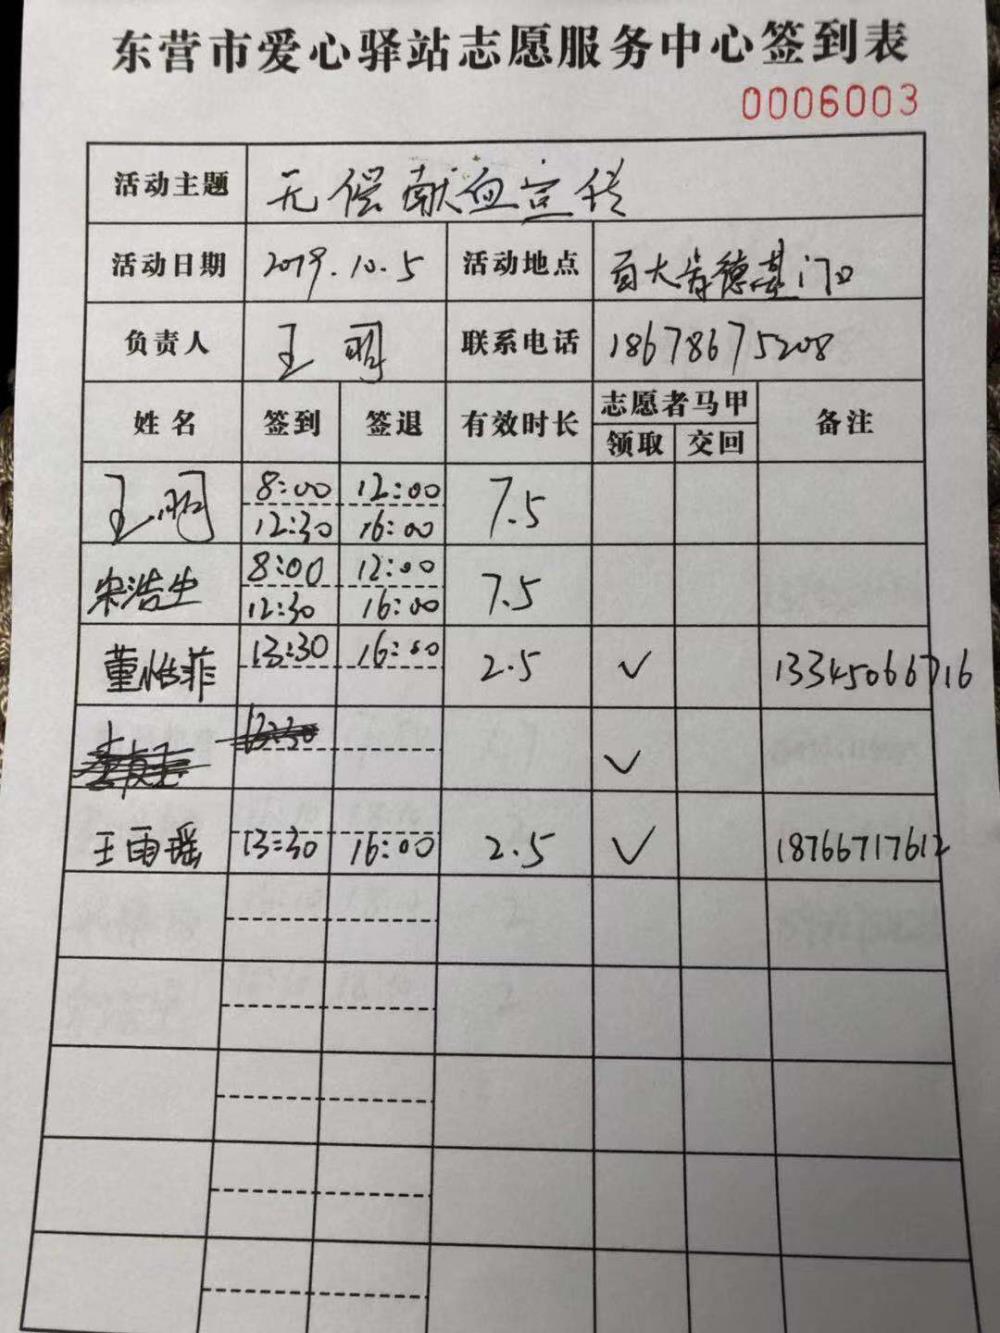 东营市爱心驿站志愿服务中心签到表
0006003
活动主题 无偿献血宣传
活动日期 2019.10.5 活动地点 百大肯德基门口
负责人 王明 联系电话 18678675208
姓名 签到 签退 有效时长 志愿者马甲 备注
领取 交回
王明 8:00 12:00 7.5
12:30 16:00
宋浩生 8:00 12:00 7.5
12:30 16:00
董怡菲 13:30 16:00 2.5 ✓ 13345066716
13:30 ✓
王雨瑶 13:30 16:00 2.5 ✓ 18766717612